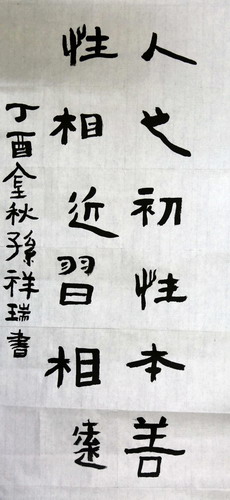 人之初性本善
性相近習相遠
丁酉金秋孫祥瑞書